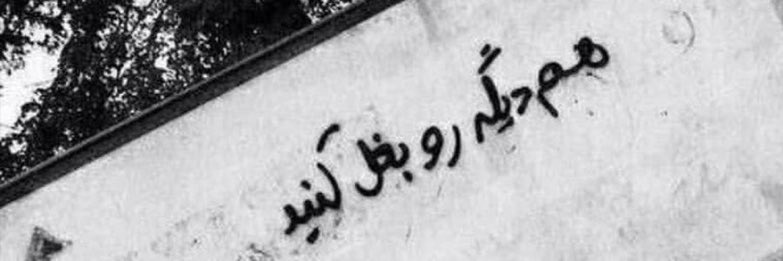 هم دیگه رو بغل کنید